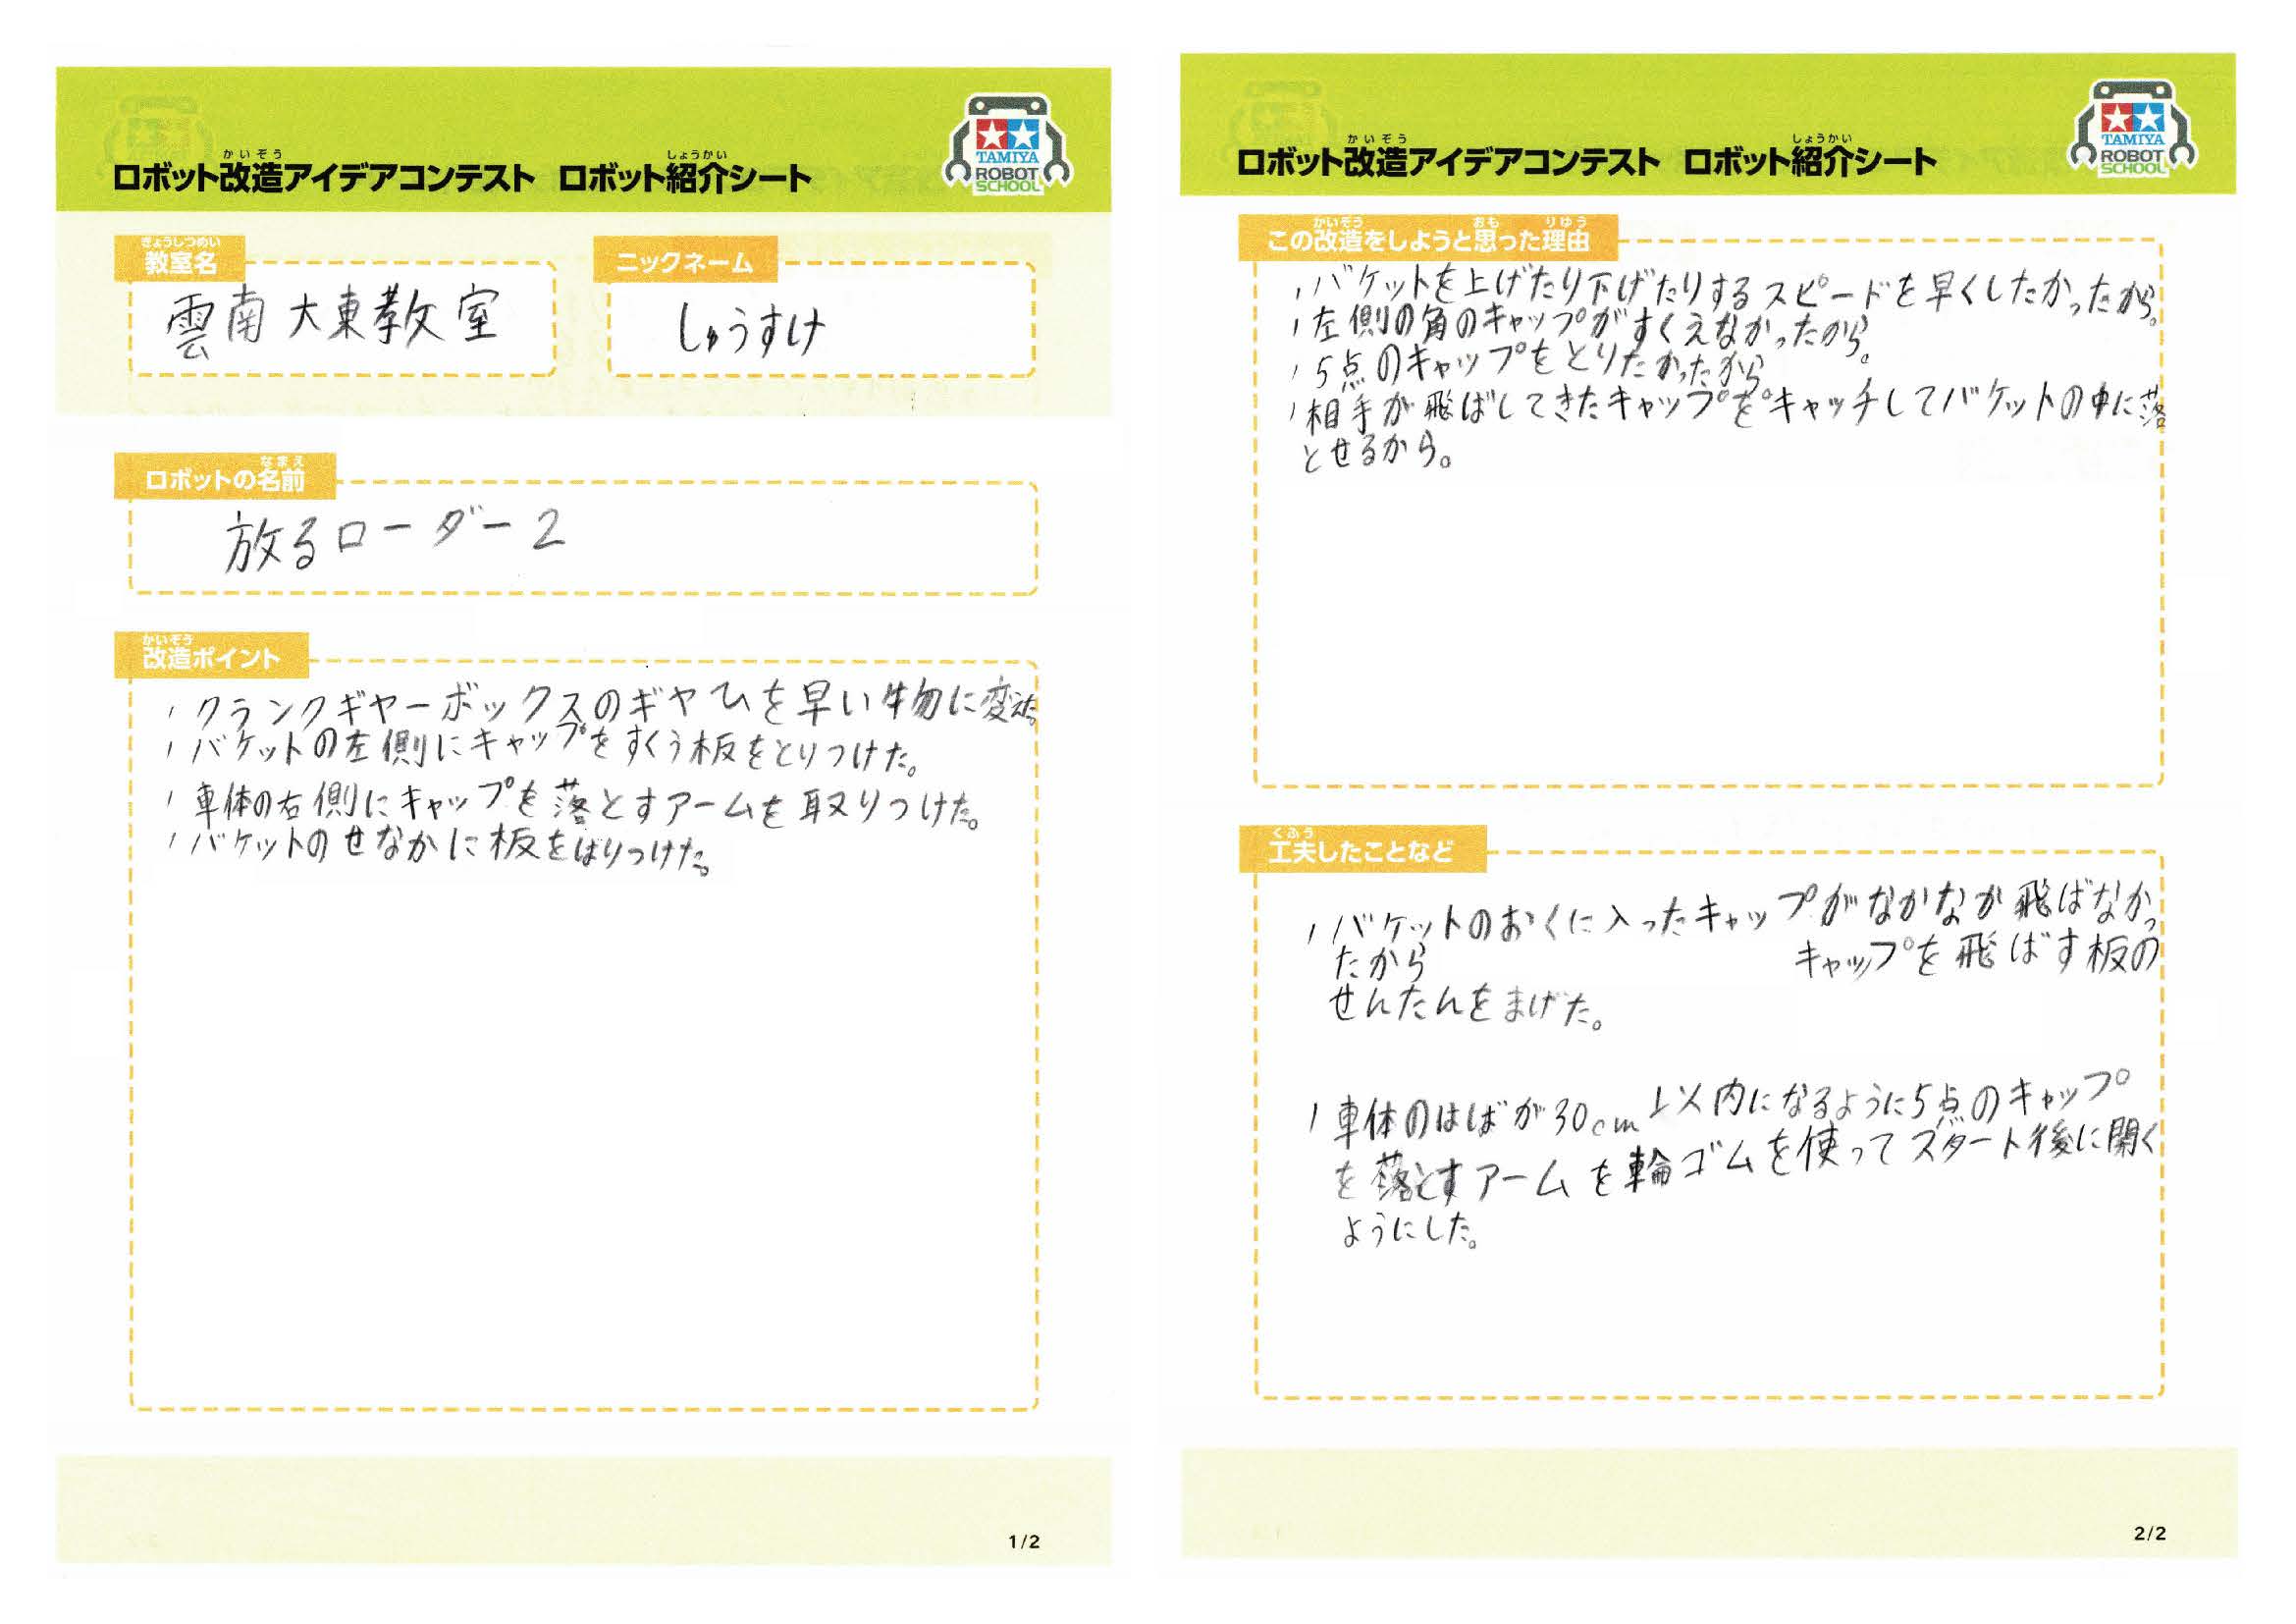 かいぞう しょうかい
ロボット改造アイデアコンテスト ロボット紹介シート
TAMIYA
ROBOT
SCHOOL
きょうしつめい
教室名
雲南大東教室
ニックネーム
しゅうすけ
なまえ
ロボットの名前
放るローダー2
かいぞう
改造ポイント
・クランクギヤーボックスのギヤひを早い物に変えた。
・バケットの左側にキャップをすくう板をとりつけた。
・車体の右側にキャップを落とすアームを取りつけた。
・バケットのせなかに板をはりつけた。
1/2
かいぞう しょうかい
ロボット改造アイデアコンテスト ロボット紹介シート
TAMIYA
ROBOT
SCHOOL
かいぞう おも りゆう
この改造をしようと思った理由
・バケットを上げたり下げたりするスピードを早くしたかったから。
・左側の角のキャップがすくえなかったから。
・5点のキャップをとりたかったから
・相手が飛ばしてきたキャップをキャッチしてバケットの中に落
とせるから。
くふう
工夫したことなど
・バケットのおくに入ったキャップがなかなか飛ばなかっ
たから キャップを飛ばす板の
せんたんをまげた。
・車体のはばが30cm以内になるように5点のキャップ
を落とすアームを輪ゴムを使ってスタート後に開く
ようにした。
2/2